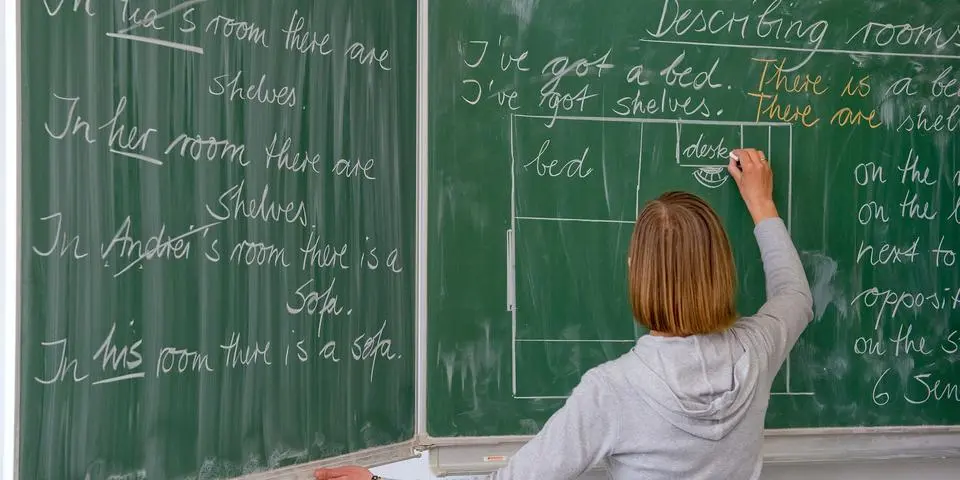 In Lea's room there are
shelves.
In her room there are
shelves.
In Andrei's room there is a
sofa.
In his room there is a sofa.
Describing rooms
I've got a bed. There is a be
I've got shelves. There are shel
bed
desk
on the
on the
next to
opposit
on the s
6 Sen